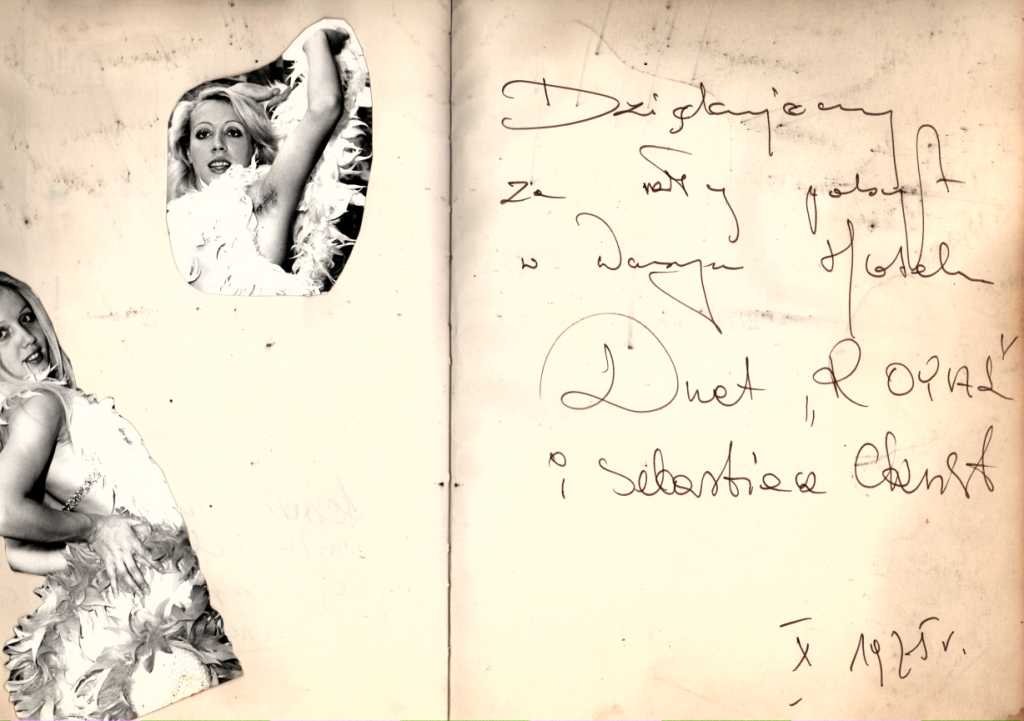 Dziękujemy
za miły pobyt
w Waszym Hotelu
Duet „ROYAL”
i Sebastian
X 1975 r.